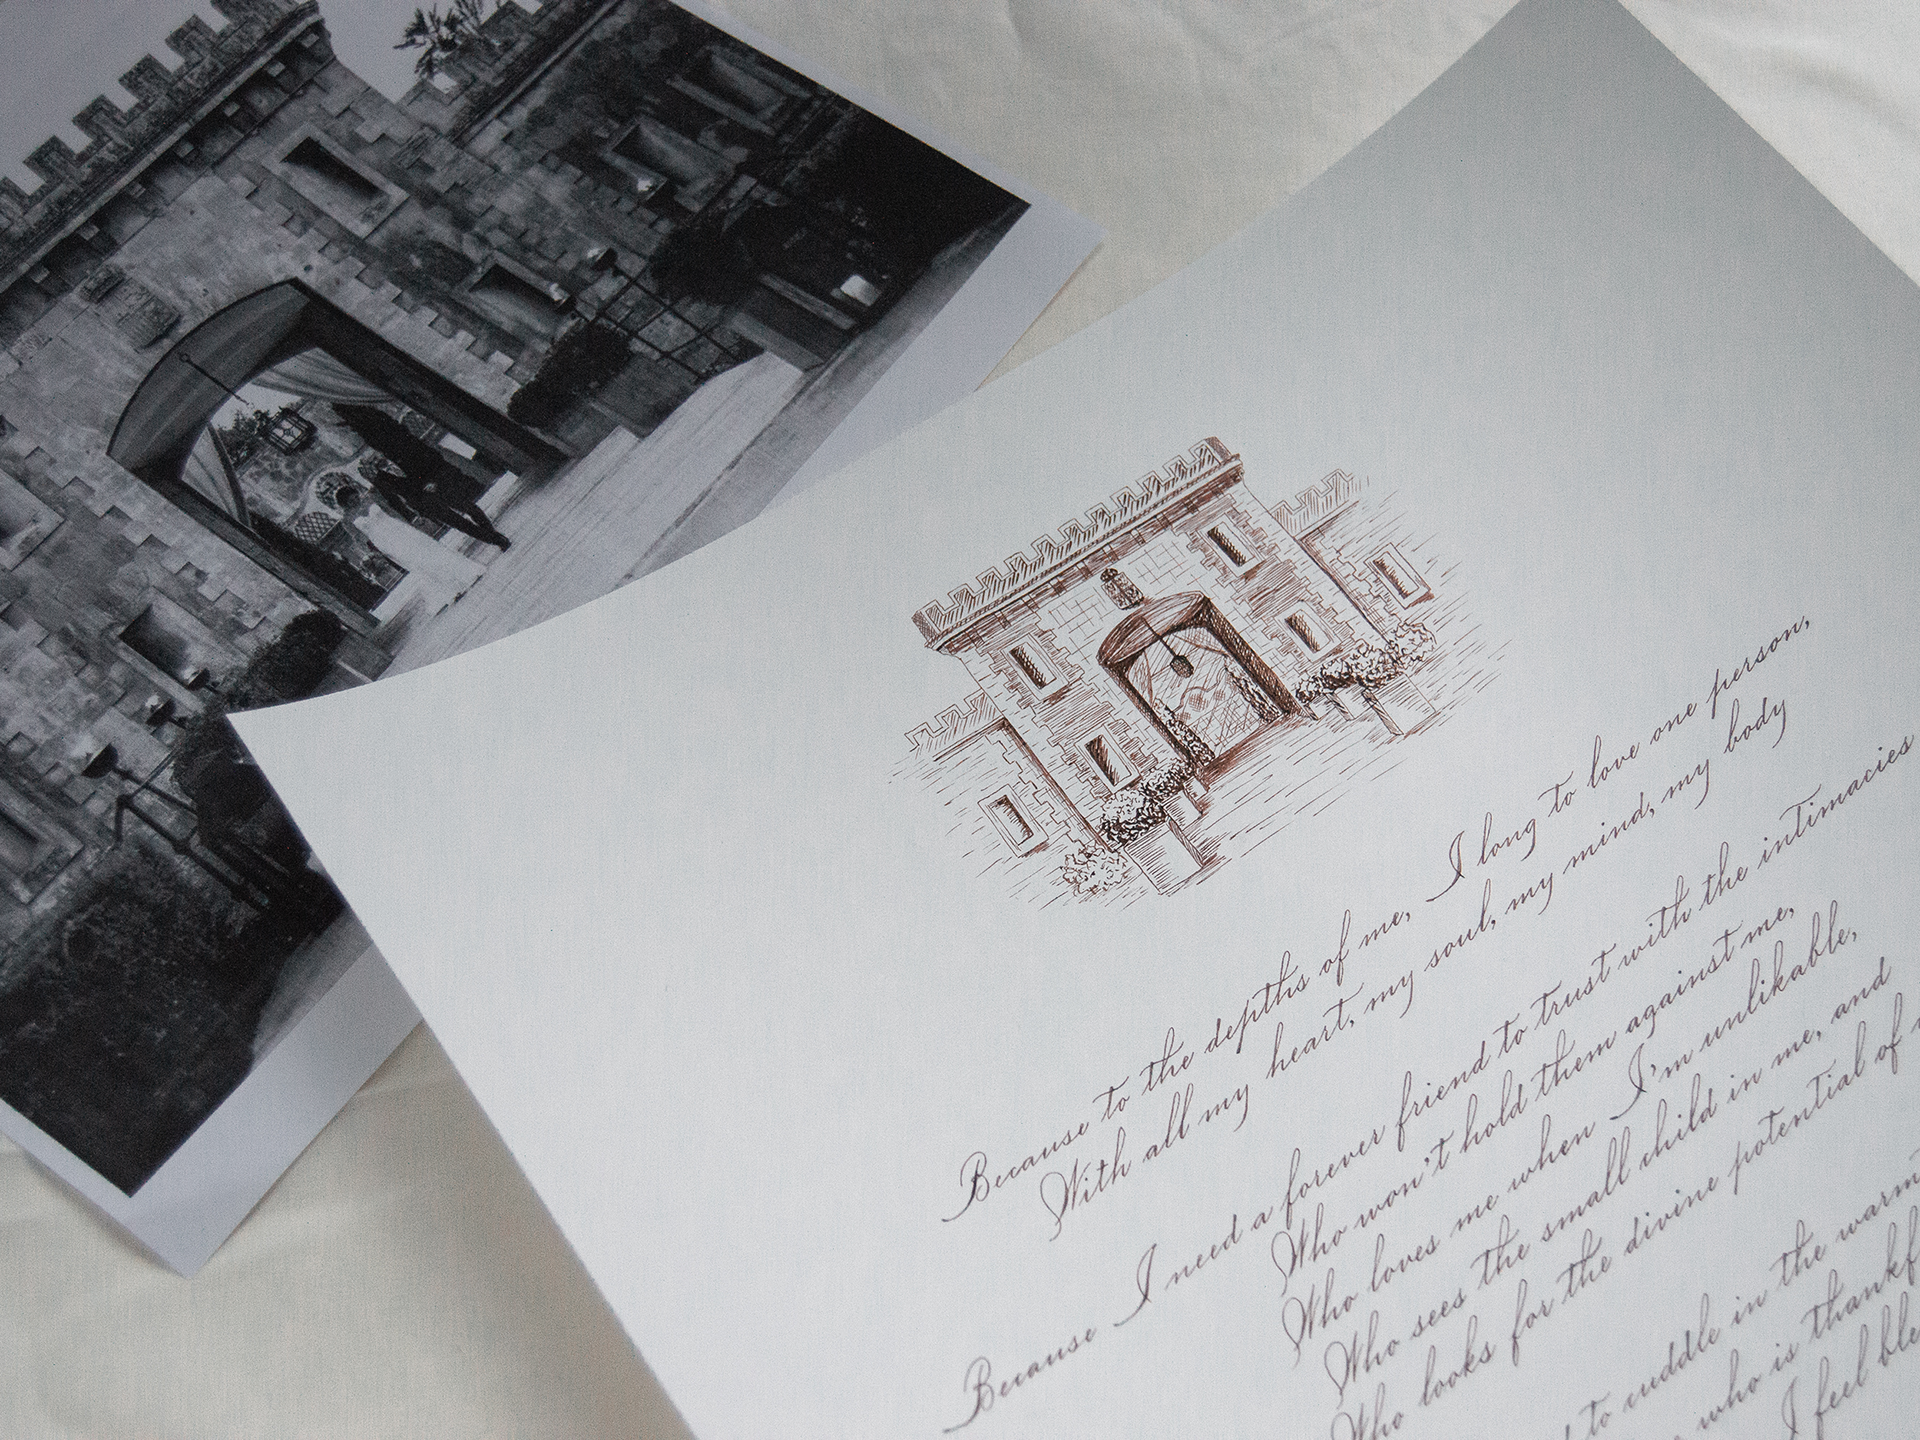 Because to the depths of me, I long to love one person,
With all my heart, my soul, my mind, my body
Because I need a forever friend to trust with the intimacies
Who won't hold them against me,
Who loves me when I'm unlikable,
Who sees the small child in me, and
Who looks for the divine potential of
to cuddle in the warmt
who is thankf
I feel ble